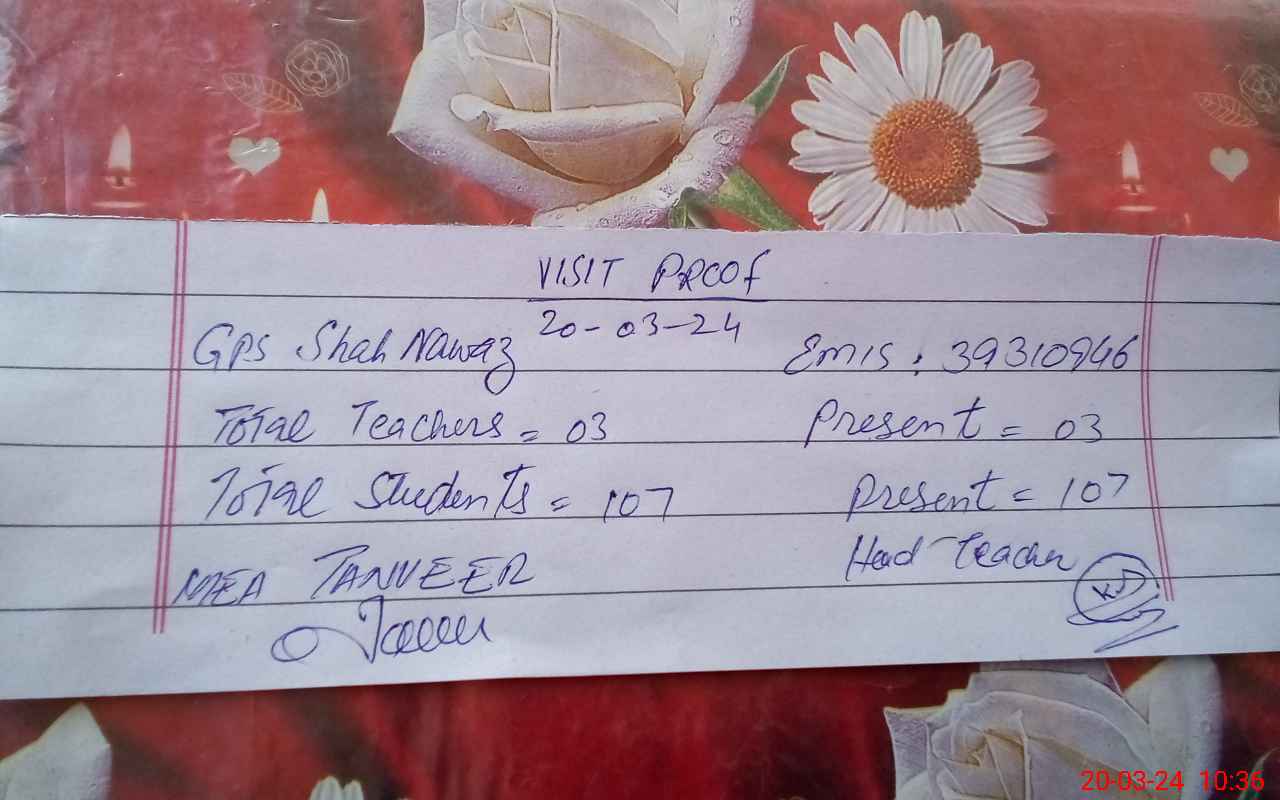 VISIT PROOF
20-03-24
GPS Shah Nawaz Emis : 39310946
Total Teachers = 03 Present = 03
Total Students = 107 Present = 107
MEA TANVEER Head Teacher
20-03-24 10:36